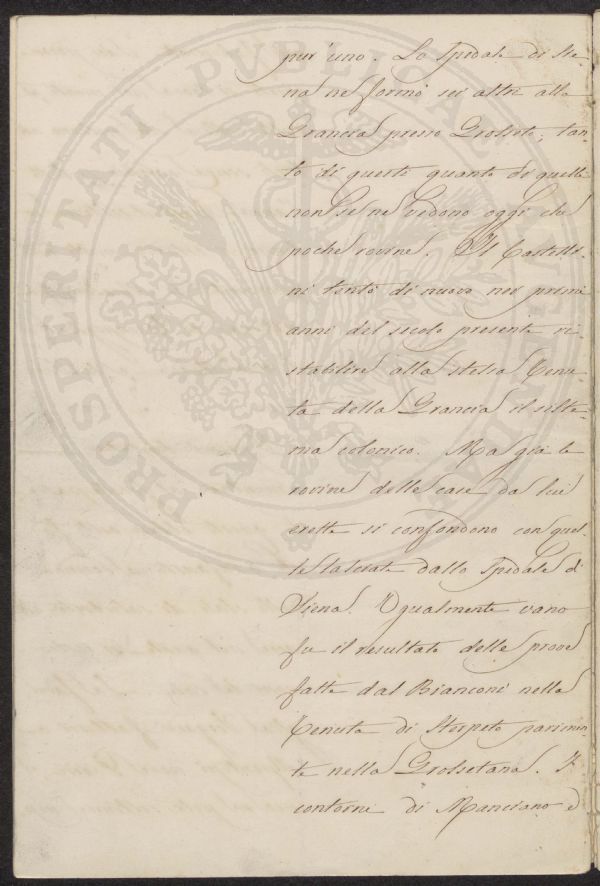 pur'uno. Lo Spedale di Sie-
na ne formò sei altri alla
Grancia presso Grosseto; tan-
to di questi quanto di quelli
non se ne vedono oggi che
poche rovine. Il Castelli-
ni tentò di nuovo nei primi
anni del secolo presente ri-
stabilire alla stessa Tenu-
ta della Grancia il siste-
ma colonico. Ma già le
rovine delle case da lui
erette si confondono con quel-
le lasciate dallo Spedale di
Siena. Ugualmente vano
fu il resultato delle prove
fatte dal Bianconi nella
Tenuta di Sterpeto parimen-
te nella Grossetana. I
contorni di Manciano e
PROSPERITATI PUBLICAE